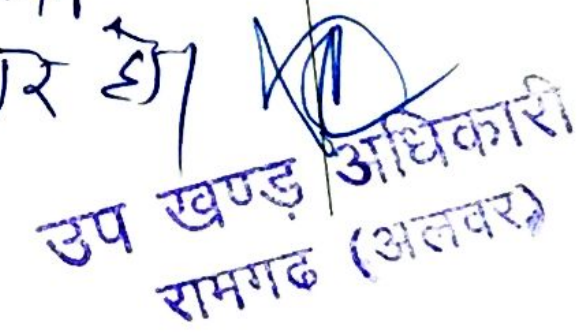 हो।
उप खण्ड़ अधिकारी
रामगढ (अलवर)